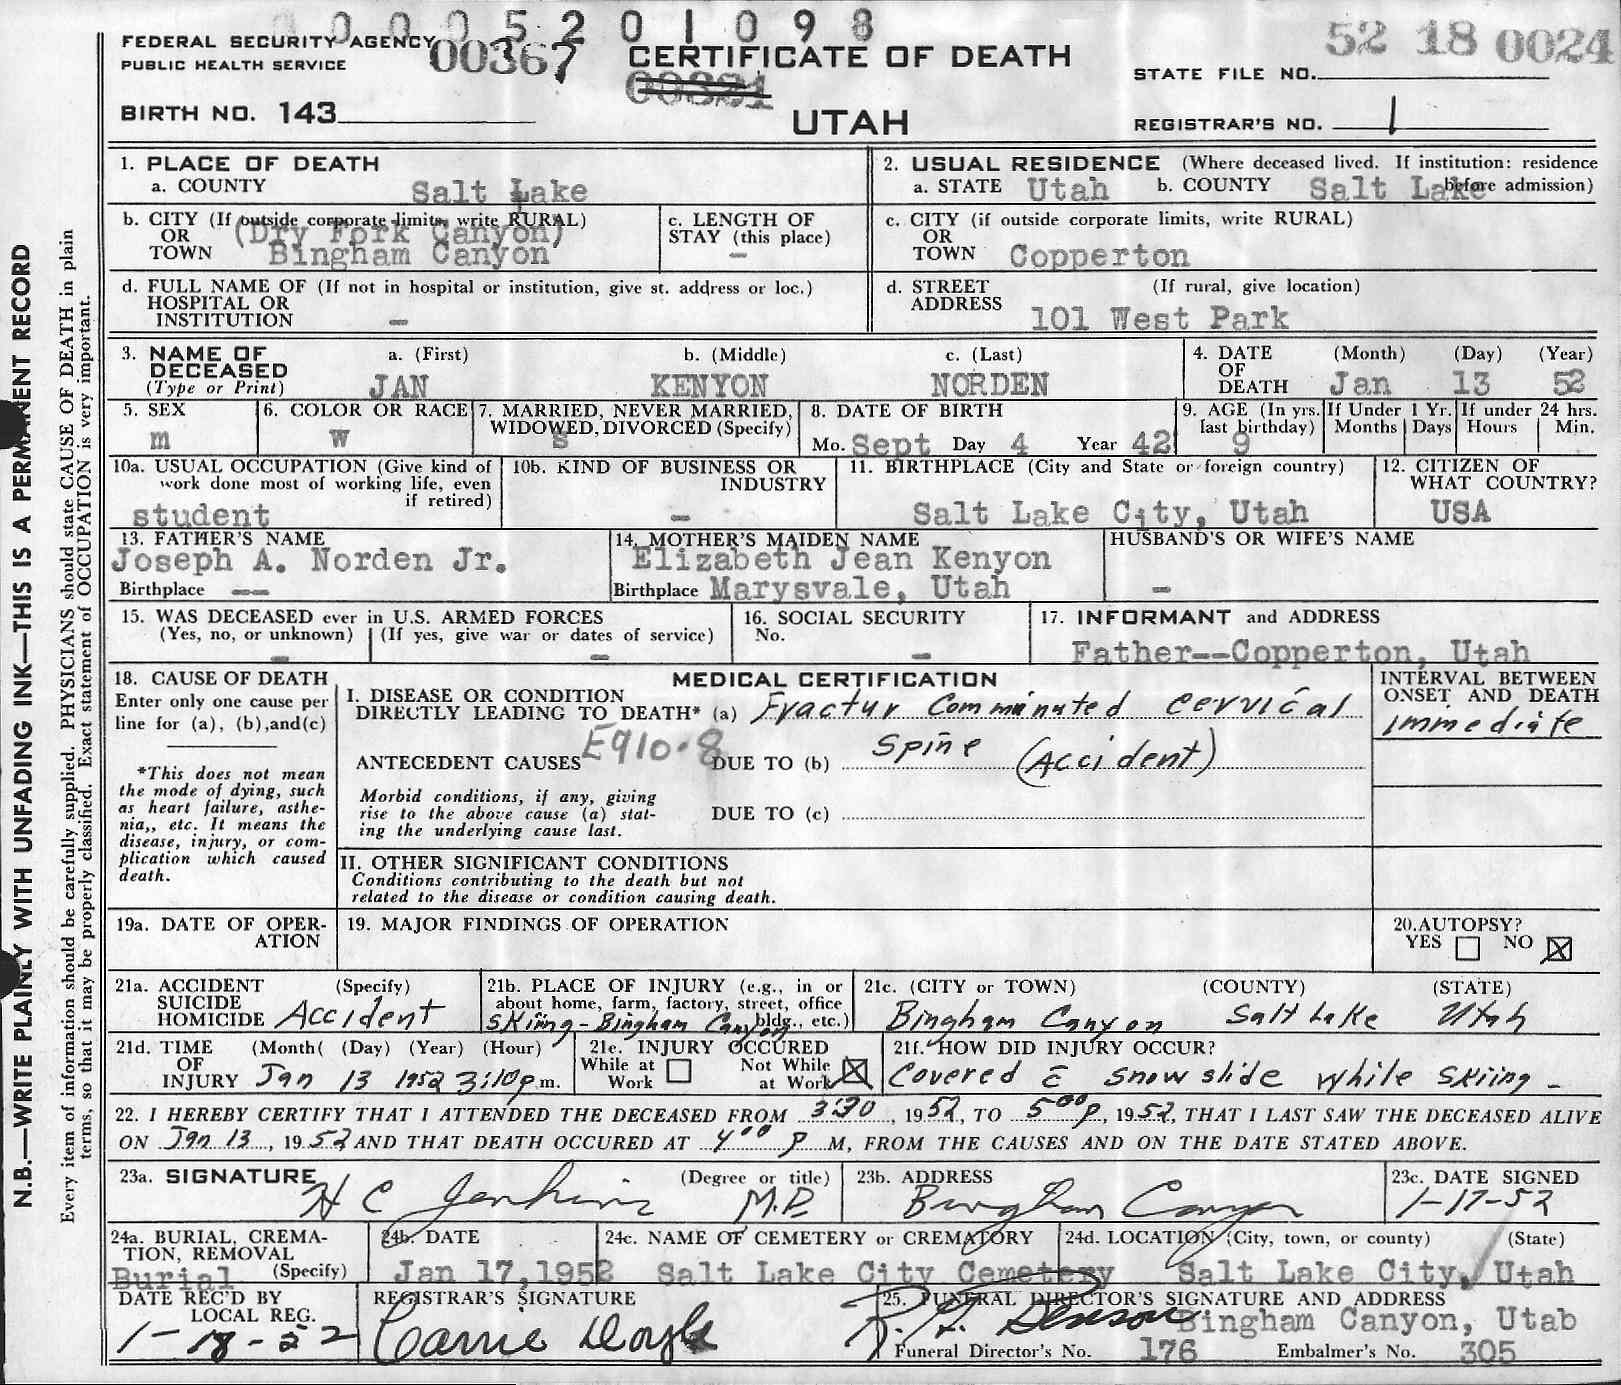 0 0 0 0 5 2 0 1 0 9 8
FEDERAL SECURITY AGENCY
PUBLIC HEALTH SERVICE
00367
CERTIFICATE OF DEATH
52 18 0024
STATE FILE NO.
BIRTH NO. 143
UTAH
REGISTRAR'S NO. 1
1. PLACE OF DEATH
a. COUNTY Salt Lake
b. CITY (If outside corporate limits, write RURAL)
OR
TOWN
(Dry Fork Canyon)
Bingham Canyon
c. LENGTH OF
STAY (this place)
-
d. FULL NAME OF (If not in hospital or institution, give st. address or loc.)
HOSPITAL OR
INSTITUTION -
2. USUAL RESIDENCE (Where deceased lived. If institution: residence
before admission)
a. STATE Utah b. COUNTY Salt Lake
c. CITY (if outside corporate limits, write RURAL)
OR
TOWN Copperton
d. STREET (If rural, give location)
ADDRESS 101 West Park
3. NAME OF a. (First) b. (Middle) c. (Last)
DECEASED
(Type or Print) JAN KENYON NORDEN
4. DATE (Month) (Day) (Year)
OF
DEATH Jan 13 52
5. SEX
m
6. COLOR OR RACE
W
7. MARRIED, NEVER MARRIED,
WIDOWED, DIVORCED (Specify)
s
8. DATE OF BIRTH
Mo. Sept Day 4 Year 42
9. AGE (In yrs.
last birthday)
9
If Under 1 Yr.
Months Days
If under 24 hrs.
Hours Min.
10a. USUAL OCCUPATION (Give kind of
work done most of working life, even
if retired)
student
10b. KIND OF BUSINESS OR
INDUSTRY
-
11. BIRTHPLACE (City and State or foreign country)
Salt Lake City, Utah
12. CITIZEN OF
WHAT COUNTRY?
USA
13. FATHER'S NAME
Joseph A. Norden Jr.
Birthplace --
14. MOTHER'S MAIDEN NAME
Elizabeth Jean Kenyon
Birthplace Marysvale, Utah
HUSBAND'S OR WIFE'S NAME
-
15. WAS DECEASED ever in U.S. ARMED FORCES
(Yes, no, or unknown) (If yes, give war or dates of service)
- -
16. SOCIAL SECURITY
No.
-
17. INFORMANT and ADDRESS
Father--Copperton, Utah
18. CAUSE OF DEATH
Enter only one cause per
line for (a), (b),and(c)
*This does not mean
the mode of dying, such
as heart failure, asthe-
nia,, etc. It means the
disease, injury, or com-
plication which caused
death.
MEDICAL CERTIFICATION
I. DISEASE OR CONDITION
DIRECTLY LEADING TO DEATH* (a) Fractur Comminuted Cervical
E910.8
ANTECEDENT CAUSES DUE TO (b) Spine (Accident)
Morbid conditions, if any, giving
rise to the above cause (a) stat-
ing the underlying cause last.
DUE TO (c)
II. OTHER SIGNIFICANT CONDITIONS
Conditions contributing to the death but not
related to the disease or condition causing death.
INTERVAL BETWEEN
ONSET AND DEATH
immediate
19a. DATE OF OPER-
ATION
19. MAJOR FINDINGS OF OPERATION
20.AUTOPSY?
YES NO X
21a. ACCIDENT (Specify)
SUICIDE
HOMICIDE Accident
21b. PLACE OF INJURY (e.g., in or
about home, farm, factory, street, office
bldg., etc.)
Skiing-Bingham Canyon
21c. (CITY or TOWN) (COUNTY) (STATE)
Bingham Canyon Salt Lake Utah
21d. TIME (Month( (Day) (Year) (Hour)
OF
INJURY Jan 13 1952 3:10p.m.
21e. INJURY OCCURED
While at Work
Not While at Work X
21f. HOW DID INJURY OCCUR?
Covered c̄ snowslide while skiing -
22. I HEREBY CERTIFY THAT I ATTENDED THE DECEASED FROM 3:30, 1952, TO 5:00 p, 1952, THAT I LAST SAW THE DECEASED ALIVE
ON Jan 13, 1952 AND THAT DEATH OCCURED AT 4:00 p M, FROM THE CAUSES AND ON THE DATE STATED ABOVE.
23a. SIGNATURE (Degree or title)
H C Jenkins M.D.
23b. ADDRESS
Bingham Canyon
23c. DATE SIGNED
1-17-52
24a. BURIAL, CREMA-
TION, REMOVAL
(Specify)
Burial
24b. DATE
Jan 17,1952
24c. NAME OF CEMETERY or CREMATORY
Salt Lake City Cemetery
24d. LOCATION (City, town, or county) (State)
Salt Lake City, Utah
DATE REC'D BY
LOCAL REG.
1-18-52
REGISTRAR'S SIGNATURE
Carrie Doyle
25. FUNERAL DIRECTOR'S SIGNATURE AND ADDRESS
Bingham Canyon, Utab
Funeral Director's No. 176 Embalmer's No. 305
N.B.—WRITE PLAINLY WITH UNFADING INK—THIS IS A PERMANENT RECORD
Every item of information should be carefully supplied. PHYSICIANS should state CAUSE OF DEATH in plain
terms, so that it may be properly classified. Exact statement of OCCUPATION is very important.